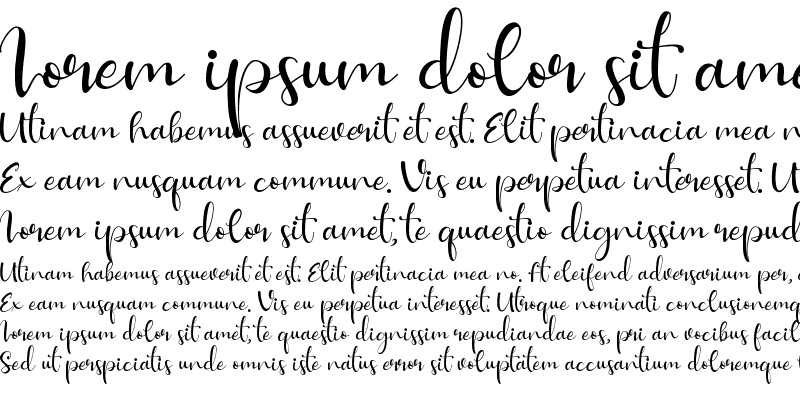 Lorem ipsum dolor sit ame
Utinam habemus assueverit et est. Elit pertinacia mea n
Ex eam nusquam commune. Vis eu perpetua interesset. U
Lorem ipsum dolor sit amet, te quaestio dignissim repud
Utinam habemus assueverit et est. Elit pertinacia mea no. At eleifend adversarium per, a
Ex eam nusquam commune. Vis eu perpetua interesset. Utroque nominati conclusionemq
Lorem ipsum dolor sit amet, te quaestio dignissim repudiandae eos, pri an vocibus facil
Sed ut perspiciatis unde omnis iste natus error sit voluptatem accusantium doloremque